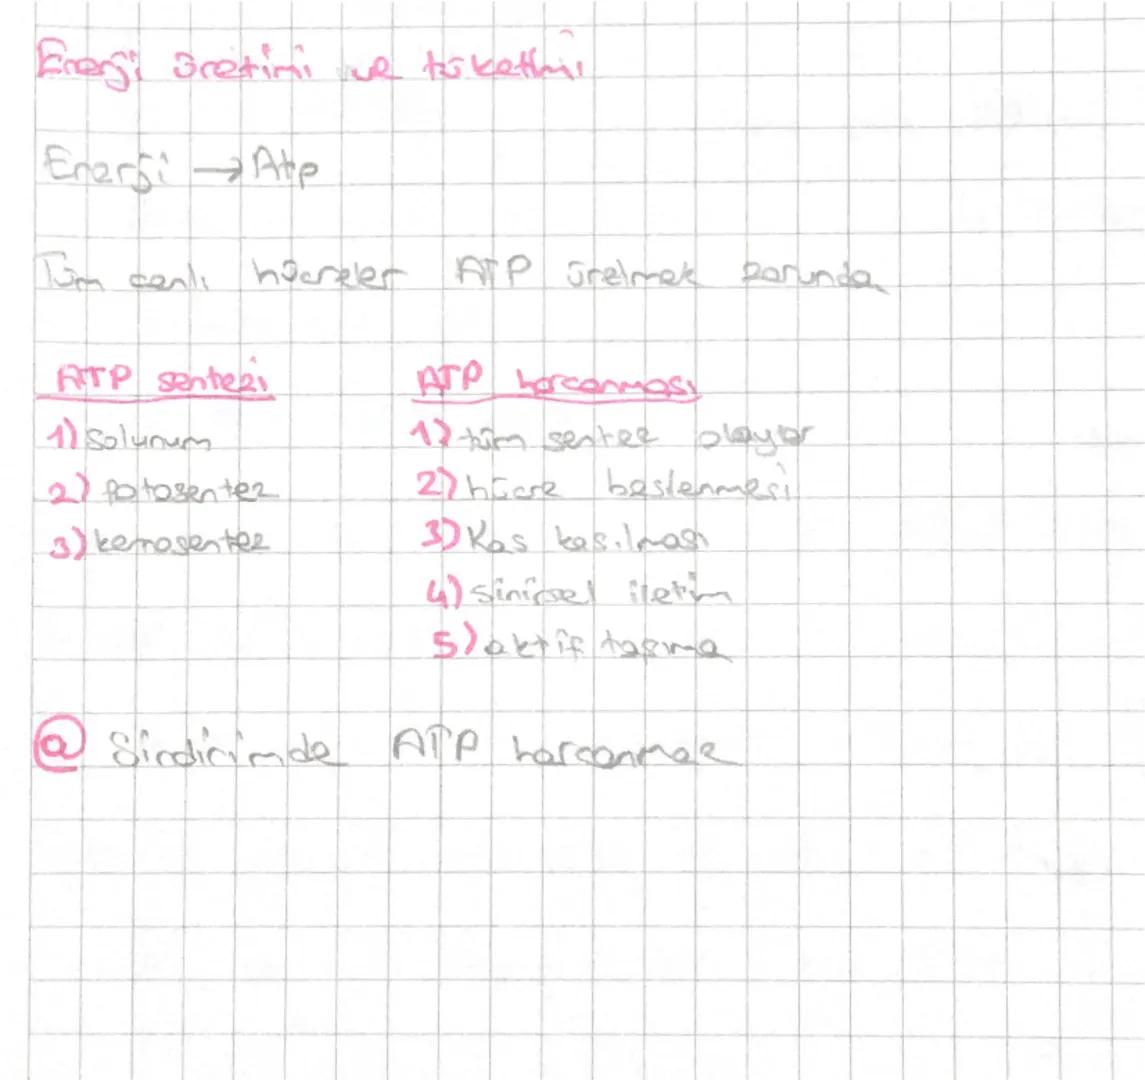 Enerji üretimi ve tüketimi
Enerji → Atp
Tüm canlı hücreler ATP üretmek zorunda
ATP sentezi
1) solunum
2) fotosentez
3) kemosentez
ATP harcanması
1) tüm sentez olaylar
2) hücre beslenmesi
3) Kas kasılması
4) sinirsel iletim
5) aktif taşıma
@ Sindirimde ATP harcanmaz